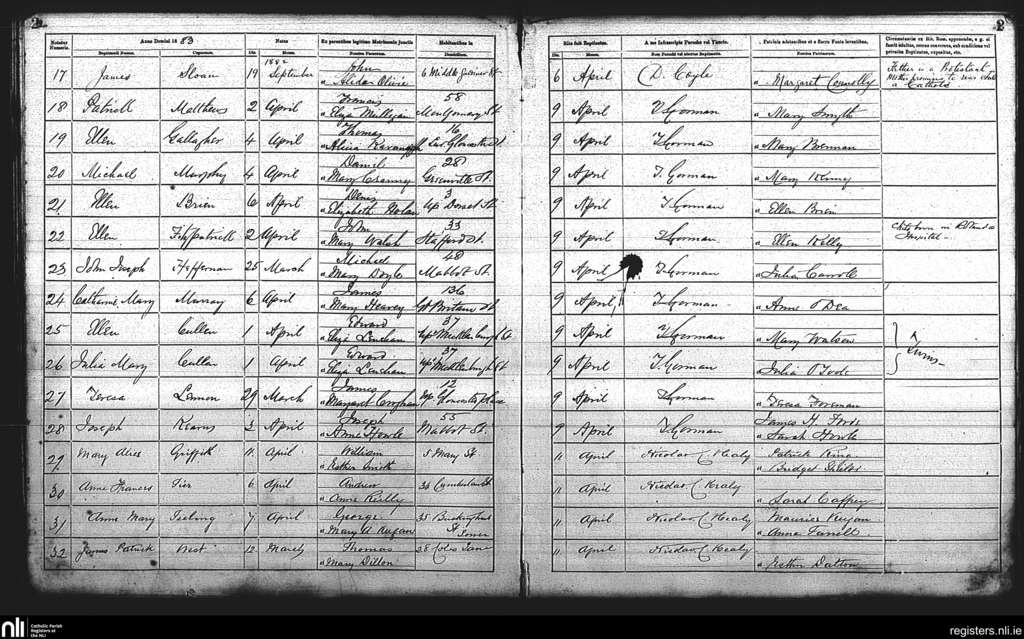 2
2
Anno Domini 18 83
Natus
Ex parentibus legitimo Matrimonio junctis
Habitantibus in
Rite fuit Baptizatus.
A me Infrascripto Parocho vel Vicario.
Baptismi Nomen.
Cognomen.
Die.
Mensis.
Nomina Parentum.
Die.
Mensis.
1882
17 James Sloan 19 September John 6 Middle Gardiner St 6 April D. Coyle
Margaret Connolly
Father is a Protestant
a Catholic
18 Patrick Matthews 2 April Francis 58 9 April T Gorman
Eliza Mulligan Montgomery St Mary Smyth
19 Ellen Gallagher 4 April Thomas 16 9 April T Gorman
Alicia Kavanagh Lr Gloucester St Mary Brennan
20 Michael Murphy 4 April Daniel 28 9 April T. Gorman
Mary Granny Grenville St. Mary Kenny
21 Ellen Brien 6 April Denis 3 9 April T Gorman
Elizabeth Nolan Up Dorset St. Ellen Brien
22 Ellen Fitzpatrick 2 April John 33 9 April T Gorman
Mary Walsh Stafford St. Ellen Kelly
Child born in Rotunda Hospital
23 John Joseph Heffernan 25 March Michael 48 9 April T Gorman
Mary Doyle Mabbot St. Julia Carroll
24 Catherine Mary Murray 6 April James 136 9 April T Gorman
Mary Heavey Gt Britain St Anne O'Dea
25 Ellen Cullen 1 April Edward 37 9 April T Gorman
Eliza Lenehan Up Mecklenburgh St Mary Watson
Twins
26 Julia Mary Cullen 1 April Edward 37 9 April T. Gorman
Eliza Lenehan Up Mecklenburgh St Julia O'Toole
27 Teresa Lennon 29 March James 12 9 April T Gorman
Margaret Croghan Up Gloucester Place Teresa Foreman
28 Joseph Kearns 3 April Joseph 55 9 April T Gorman James H.
Anne Howle Mabbot St. Sarah Howle
29 Mary Alice Griffith 11 April William 5 Mary St. 11 April Nicolas C Healy Patrick King
Esther Smith Bridget
30 Anne Frances Tier 6 April Andrew 34 Cumberland St 11 April Nicolas C Healy
Anne Reilly Sarah Caffrey
31 Anne Mary Teeling 7 April George 35 Buckingham 11 April Nicolas C Healy Maurice Rugan
Mary A Rugan St Lower Anna Farrell
32 James Patrick West 12 March Thomas 28 Coles Lane 11 April Nicolas C Healy
Mary Dillon Esther Dalton
nli Catholic Parish
Registers at
the NLI
registers.nli.ie